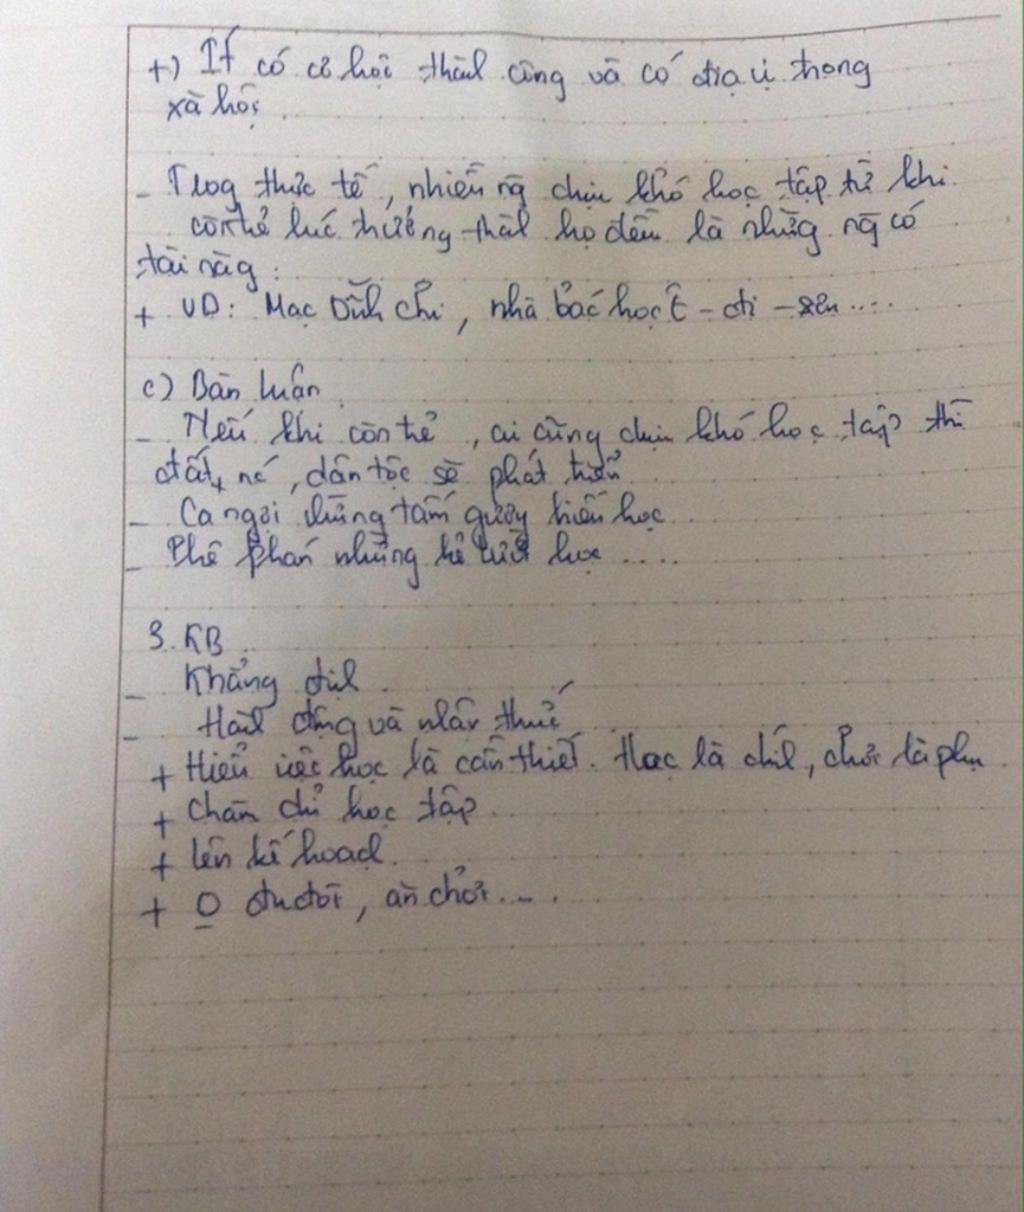 +) Ít có cơ hội thàh công và có địa vị trong
xã hội.
- Trog thực tế, nhiều ng chịu khó học tập từ khi
còn trẻ lúc trưởng thàh họ đều là những ng có
tài năg:
+ VD: Mạc Đĩnh Chi, nhà bác học Ê-đi-sơn....
c) Bàn luận
- Nếu khi còn trẻ, ai cũng chịu khó học tập thì
đất nc, dân tộc sẽ phát triển
- Ca ngợi những tấm gương hiếu học
- Phê phán những kẻ lười học .....
3. KB
- Khẳng địh
- Hàh động và nhận thức
+ Hiểu việc học là cần thiết. Học là chíh, chơi là phụ
+ Chăm chỉ học tập
+ Lên kế hoạch.
+ O đua đòi, ăn chơi....